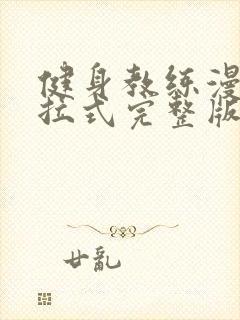 健身教练漫
拉式完整版
廿亂